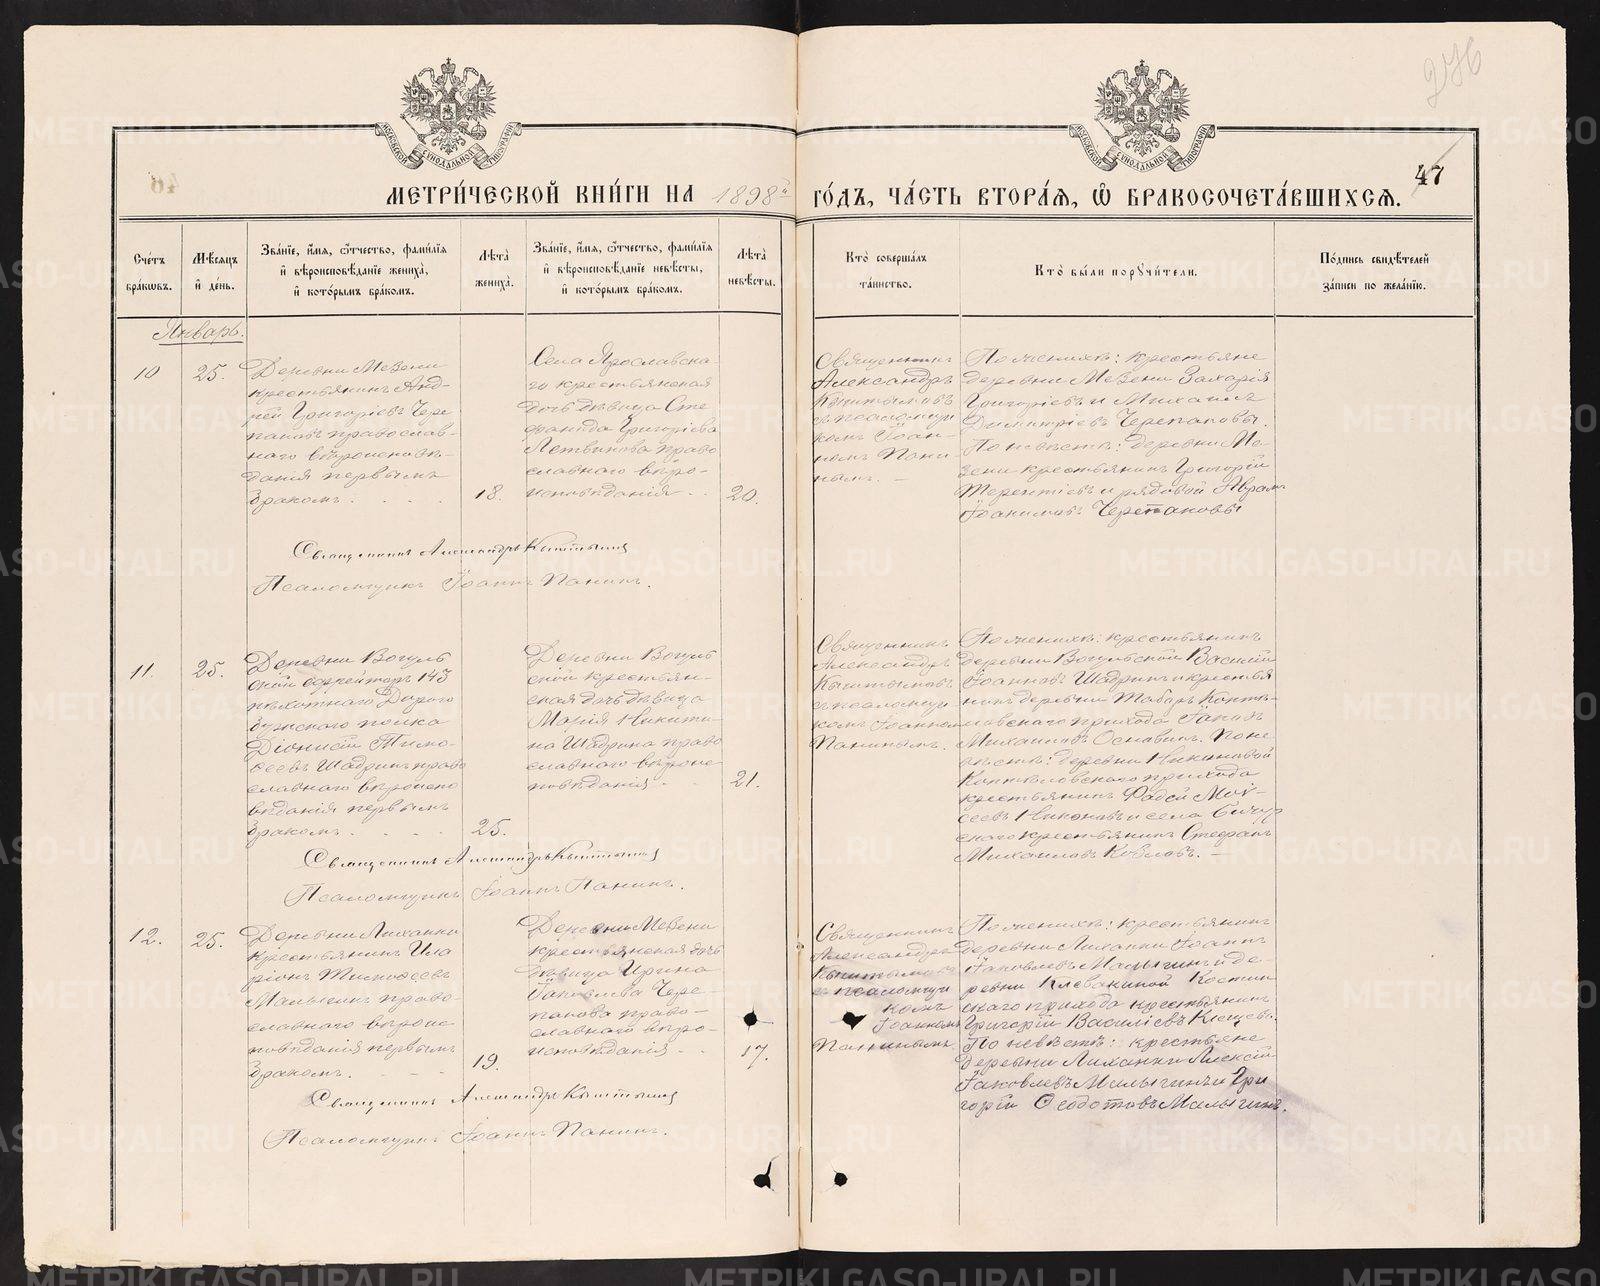 276
47
МЕТРИ́ЧЕСКОЙ КНИ́ГИ НА 1898й ГО́ДЪ, ЧА́СТЬ ВТОРА́Я, Ѡ БРАКОСОЧЕТА́ВШИХСЯ.
Сче́тъ бра́кѡвъ.
Мѣ́сяцъ и҆ де́нь.
Зва́нїе, и҆́мя, ѻ҆́тчество, фами́лїя и҆ вѣроисповѣ́данїе жениха̀, и҆ кото́рымъ бра́комъ.
Лѣ́та жениха̀.
Зва́нїе, и҆́мя, ѻ҆́тчество, фами́лїя и҆ вѣроисповѣ́данїе невѣ́сты, и҆ кото́рымъ бра́комъ.
Лѣ́та невѣ́сты.
Кто̀ соверша́лъ та́инство.
Кто̀ бы́ли порꙋчи́тели.
По́дпись свидѣ́телей за́писи по жела́нїю.
Январь.
10
25.
Деревни Мезени
крестьянинъ Анд-
рей Григорїевъ Чере
пановъ православ-
наго вѣроисповѣ-
данія первымъ
бракомъ.
18.
Села Ярославска-
го крестьянская
дочь дѣвица Сте
фанида Григорїева
православнаго вѣро-
исповѣданія
20.
Священникъ
Александръ
Кыштымовъ
съ псаломщи
комъ Іоан-
номъ Пани
нымъ.
По женихѣ: крестьяне
деревни Мезени Захарія
Григорїевъ и Михаилъ
Димитріевъ Черепановы.
По невѣстѣ: деревни Ме-
зени крестьянинъ Григорій
Терентїевъ и рядовой Аврамъ
Іоакимовъ Черепановы
Священникъ Александръ Кыштымовъ
Псаломщикъ Іоаннъ Панинъ.
11.
25.
Деревни Вогуль
ской ефрейторъ 143
пѣхотнаго Дорого
бужскаго полка
Діонисій Тимо-
ѳеевъ Шадринъ право
славнаго вѣроиспо
вѣданія первымъ
бракомъ.
25.
Деревни Вогуль
ской крестьян-
ская дочь дѣвица
Марїя Никити-
на Шадрина право
славнаго вѣроис
повѣданія
21.
Священникъ
Александръ
Кыштымовъ
съ псаломщи
комъ Іоанномъ
Панинымъ.
По женихѣ: крестьянинъ
деревни Вогульской Василій
Іоанновъ Шадринъ и крестья
нинъ деревни Таборъ Коптѣ-
ловскаго прихода Іаковъ
Михаиловъ По не
вѣстѣ: деревни Никоновой
Коптѣловскаго прихода
крестьянинъ Фадей Мої-
сеевъ Никоновъ и села Бичур
скаго крестьянинъ Стефанъ
Михаиловъ Козловъ.
Священникъ Александръ Кыштымовъ
Псаломщикъ Іоаннъ Панинъ.
12.
25.
Деревни Лиханки
крестьянинъ Ила
рїонъ Тимоѳеевъ
Малыгинъ право-
славнаго вѣроис
повѣданія первымъ
бракомъ.
19.
Деревни Мезени
крестьянская дочь
дѣвица Ирина
Іаковлева Чере-
панова право-
славнаго вѣро-
исповѣданія
17.
Священникъ
Александръ
Кыштымовъ
съ псаломщи
комъ
Іоанномъ
Панинымъ
По женихѣ: крестьянинъ
деревни Лиханки Іоаннъ
Іаковлевъ Малыгинъ и де-
ревни Клевакиной Костин
скаго прихода крестьянинъ
Григорїй Василїевъ Клещевъ.
По невѣстѣ: крестьяне
деревни Лиханки Алексій
Іаковлевъ Малыгинъ и Гри
горїй Ѳедотовъ Малыгинъ.
Священникъ Александръ Кыштымовъ
Псаломщикъ Іоаннъ Панинъ.
METRIKI.GASO-URAL.RU